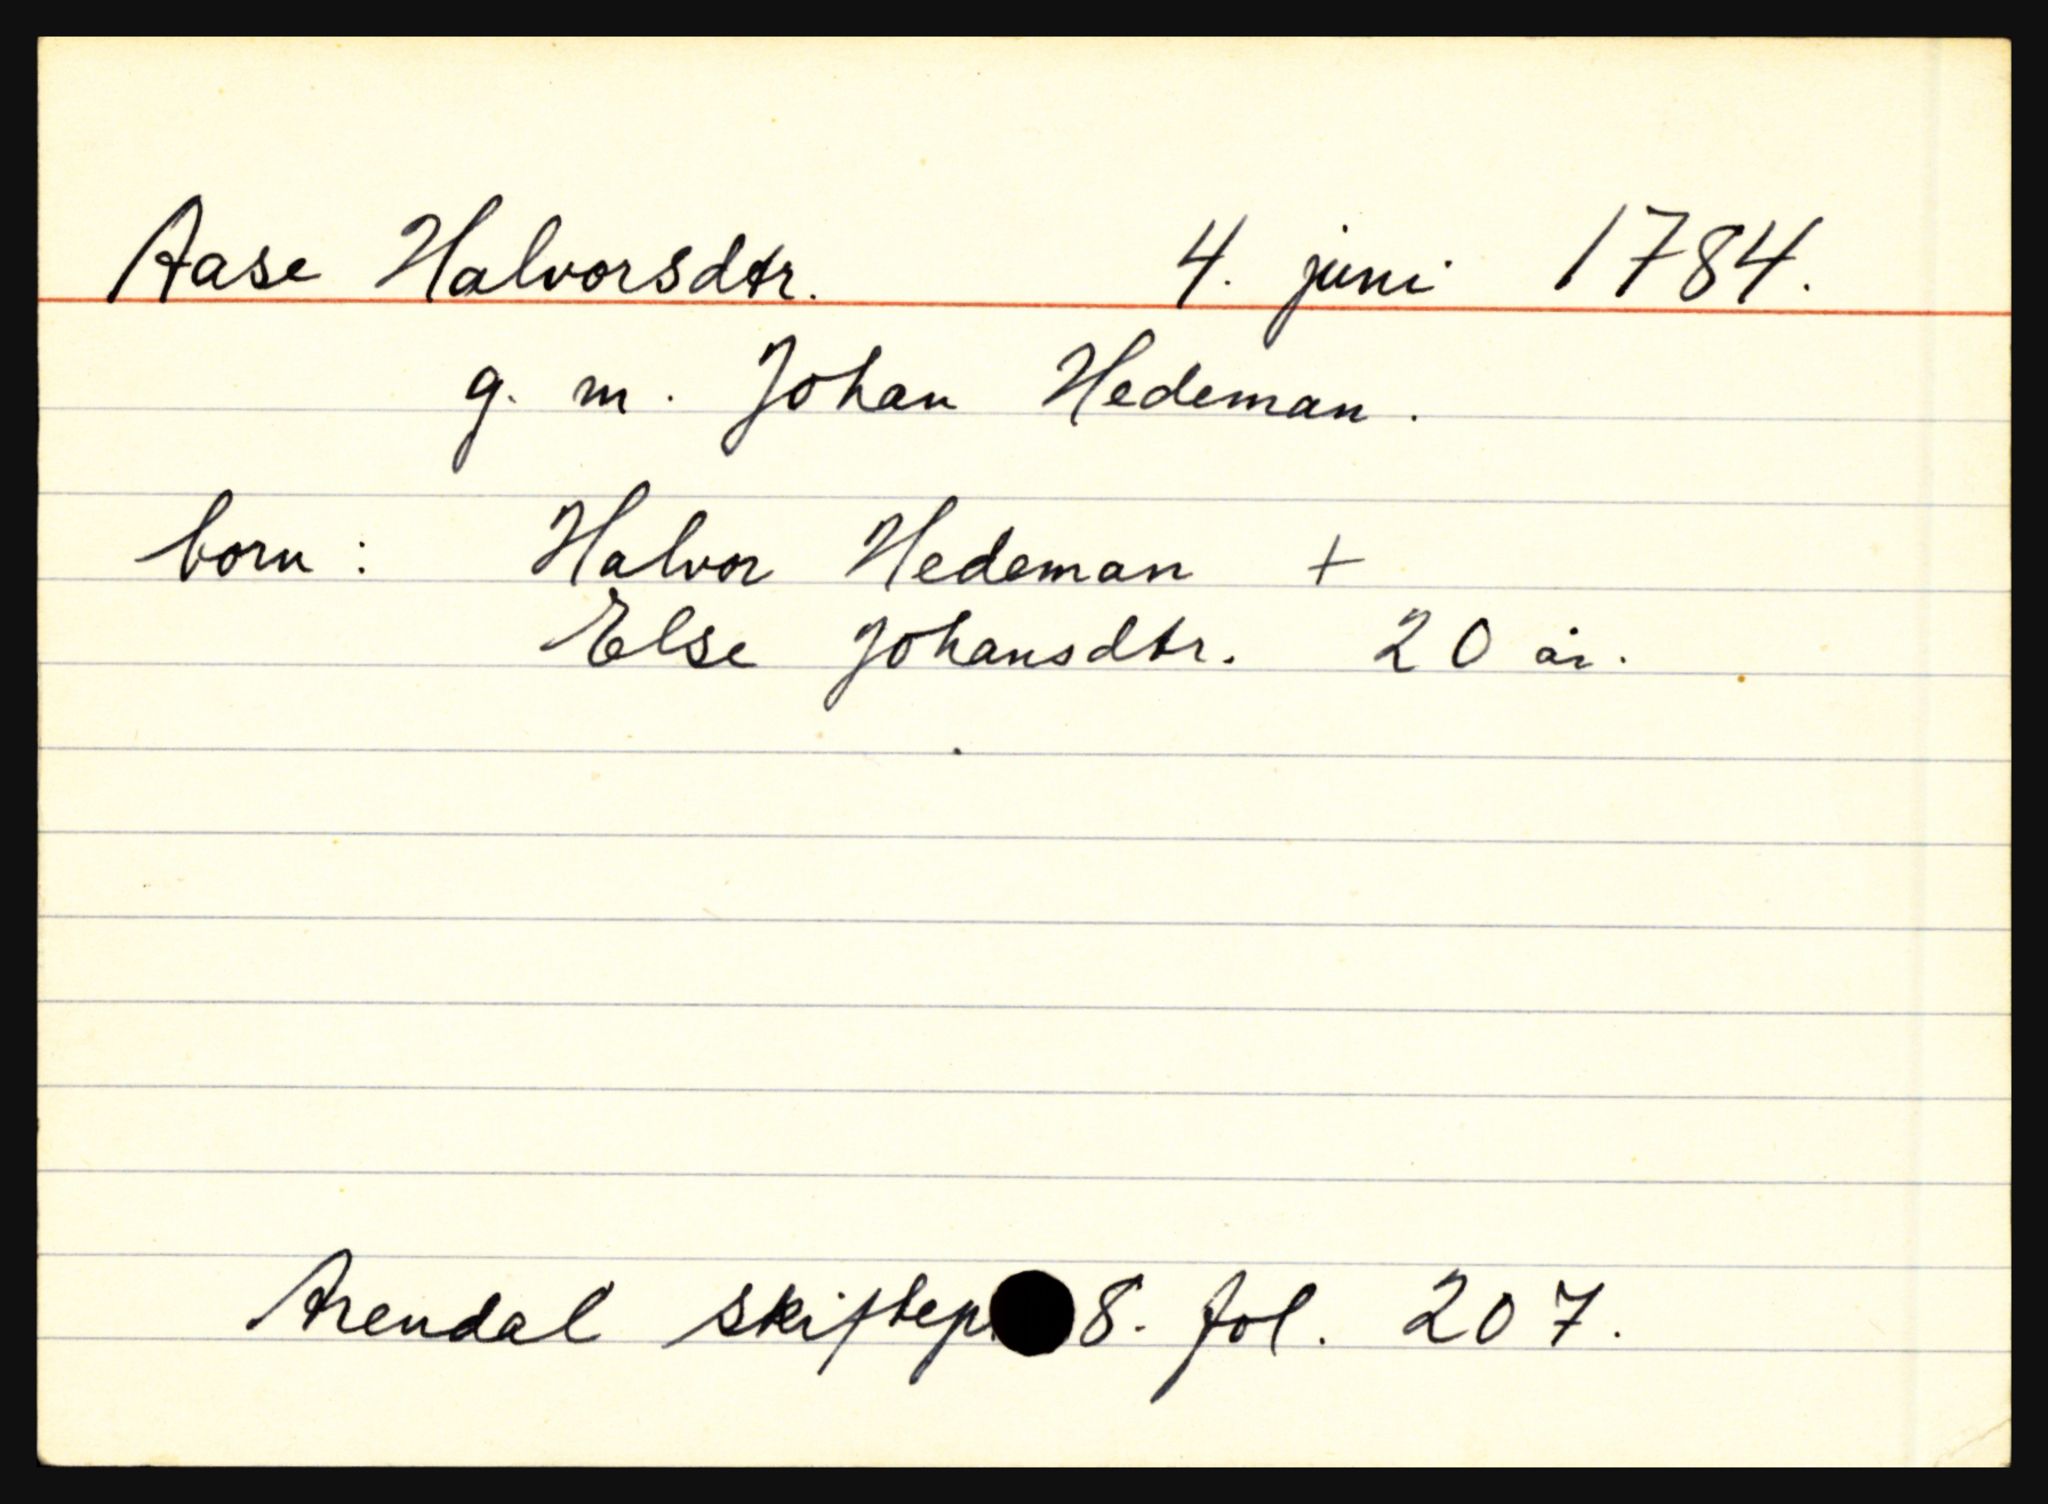 Aase Halvorsdtr. 4. juni 1784.
g. m. Johan Hedeman.
born: Halvor Hedeman +
Else Johansdtr. 20 år.
Arendal 8. fol. 207.